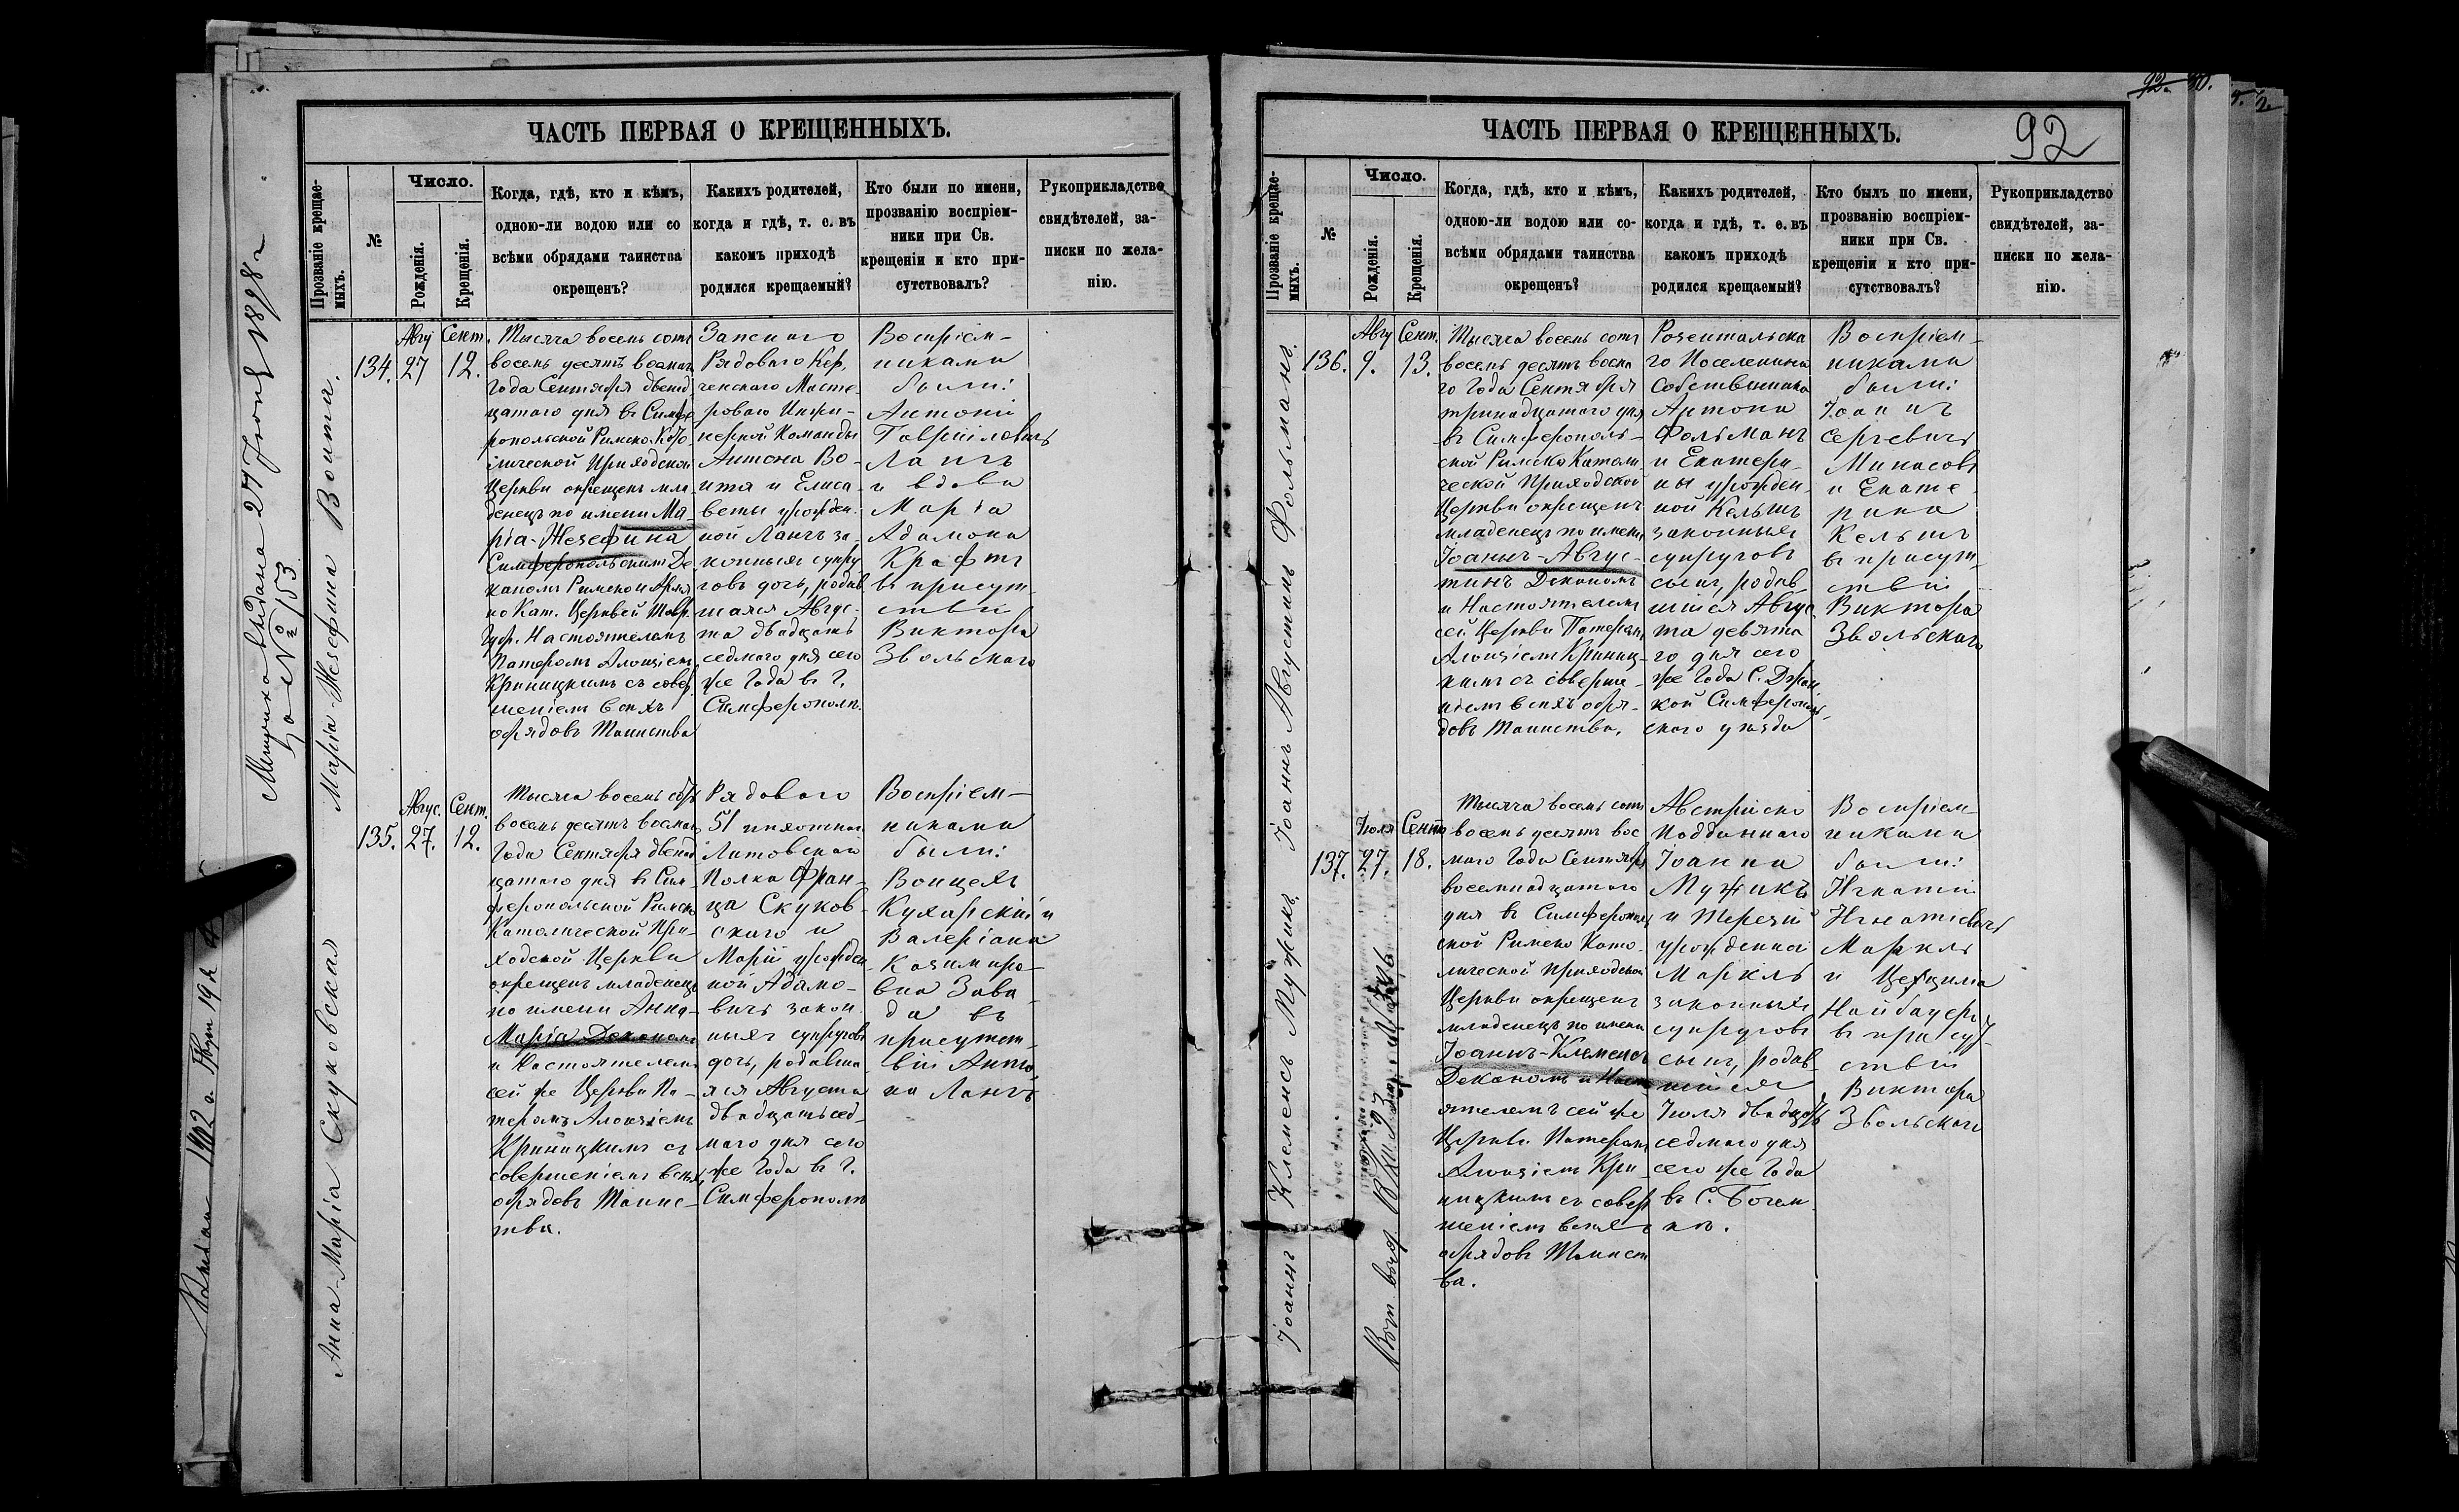 ЧАСТЬ ПЕРВАЯ О КРЕЩЕННЫХЪ.
Прозваніе крещае-
мыхъ.
№
Число.
Рожденія.
Крещенія.
Когда, гдѣ, кто и кѣмъ,
одною-ли водою или со
всѣми обрядами таинства
окрещенъ?
Какихъ родителей,
когда и гдѣ, т. е. въ
какомъ приходѣ
родился крещаемый?
Кто были по имени,
прозванію воспріем-
ники при Св.
крещеніи и кто при-
сутствовалъ?
Рукоприкладство
свидѣтелей, за-
писки по жела-
нію.
Метрика выдана 27 Іюня 1898 г
за № 153
Марія-Жезефина Воита.
134.
Авгу
27
Сент.
12.
Тысяча восемь сотъ
восемь десятъ восмаго
Года Сентября двенад
цатаго дня въ Симфе
ропольской Римско Като
лической Приходской
Церкви окрещенъ мла
денецъ по имени Ма
рія-Жезефина
Симферопольскимъ Де
каномъ Римско и Армя
но Кат. Церквей Тавр.
Губ. Настоятелемъ
Патеромъ Алоизіемъ
Криницкимъ съ совер
шеніемъ всѣхъ
обрядовъ Таинства
Запснаго
Рядоваго Кер,
ченскаго Масте
роваго Инжи-
нерной Команды
Антона Во-
ита и Елиса-
веты урожден-
ной Лангъ за-
конныхъ супру
говъ дочь, родив
шаяся Авгус-
та двадцать
седмаго дня сего
же Года въ Г.
Симферополѣ.
Воспріем-
никами
были:
Антоній
Гавріиловичъ
Лангъ
и вдова
Марія
Адамона
Крафтъ
въ присут
ствіи
Виктора
Звольскаго
Анна-Марія Скуковская
135.
Авгус.
27.
Сент.
12.
Тысяча восемь сотъ
восемь десятъ восмаго
Года Сентября двенад
цатаго дня въ Сим-
феропольской Римско
Католической При-
ходской Церкви
окрещенъ младенецъ
по имени Анна-
Марія Деканомъ
и Настоятелемъ
сей же Церкви Па-
теромъ Алоизіемъ
Криницкимъ съ
совершеніемъ всѣхъ
обрядовъ Таинс-
тва.
Рядоваго
51 пихотнаго
Литовскаго
Полка Фран-
ца Скуков-
скаго и
Маріи урожден
ной Адамо-
вичъ закон
ныхъ супруговъ
дочь, родивша
яся Августа
двадцать сед-
маго дня сего
же Года въ Г.
Симферополѣ
Воспріем-
никами
были:
Воицехъ
Кухарскій и
Валеріана
Казимиро-
вна Зава-
да въ
присутст-
віи Анто
на Лангъ
ЧАСТЬ ПЕРВАЯ О КРЕЩЕННЫХЪ.
92
Прозваніе крещае-
мыхъ.
№
Число.
Рожденія.
Крещенія.
Когда, гдѣ, кто и кѣмъ,
одною-ли водою или со-
всѣми обрядами таинства
окрещенъ?
Какихъ родителей,
когда и гдѣ, т. е. въ
какомъ приходѣ
родился крещаемый?
Кто былъ по имени,
прозванію воспріем-
ники при Св.
крещеніи и кто при-
сутствовалъ?
Рукоприкладство
свидѣтелей, за-
писки по жела-
нію.
Іоаннъ Августинъ Фольманъ.
136.
Авгу
9.
Сент.
13.
Тысяча восемь сотъ
восемь десятъ восма
го Года Сентября
тринадцатаго дня
въ Симферополь-
ской Римско Католи
ческой Приходской
Церкви окрещенъ
младенецъ по имени
Іоаннъ-Авгус-
тинъ Деканомъ
и Настоятелемъ
сей Церкви Патеромъ
Алоизіемъ Криниц-
кимъ съ соверше-
ніемъ всѣхъ обря-
довъ Таинства.
Розентальска
го Поселенина
Собственника
Антона
Фольманъ
и Екатери-
ны урожден-
ной Кельшъ
законныхъ
супруговъ
сынъ, родив
шійся Авгус
та девята
го дня сего
же Года С. Джай
кой Симферополь
скаго уѣзда
Воспріем-
никами
были:
Іоаннъ
Сергевичъ
Минасовъ
и Екате
рина
Кельшъ
въ присут
ствіи
Виктора
Звольскаго
Іоаннъ Клеменсъ Мужикъ
137.
Іюля
27.
Сент
18.
Тысяча восемь сотъ
восемь десятъ вос
маго Года Сентября
восемнадцатаго
дня въ Симферополь
ской Римско Като
лической Приходской
Церкви окрещенъ
младенецъ по имени
Іоаннъ-Клеменсъ
Деканомъ и Наст
оятелемъ сей же
Церкви Патеромъ
Алоизіемъ Кри-
ницкимъ съ совер
шеніемъ всѣхъ
обрядовъ Таинст
ва.
Австрійско
Подданнаго
Іоанна
Мужикъ
и Терезіи
урожденной
Маркль
законныхъ
супруговъ
сынъ, родив
шійся
Іюля двадцать
седмаго дня
сего же Года
въ С. Богем
кѣ.
Воспріем-
никами
были:
Игнатій
Игнатіевичъ
Маркль
и Цецилія
Найбауеръ
въ присут
ствіи
Виктора
Звольскаго